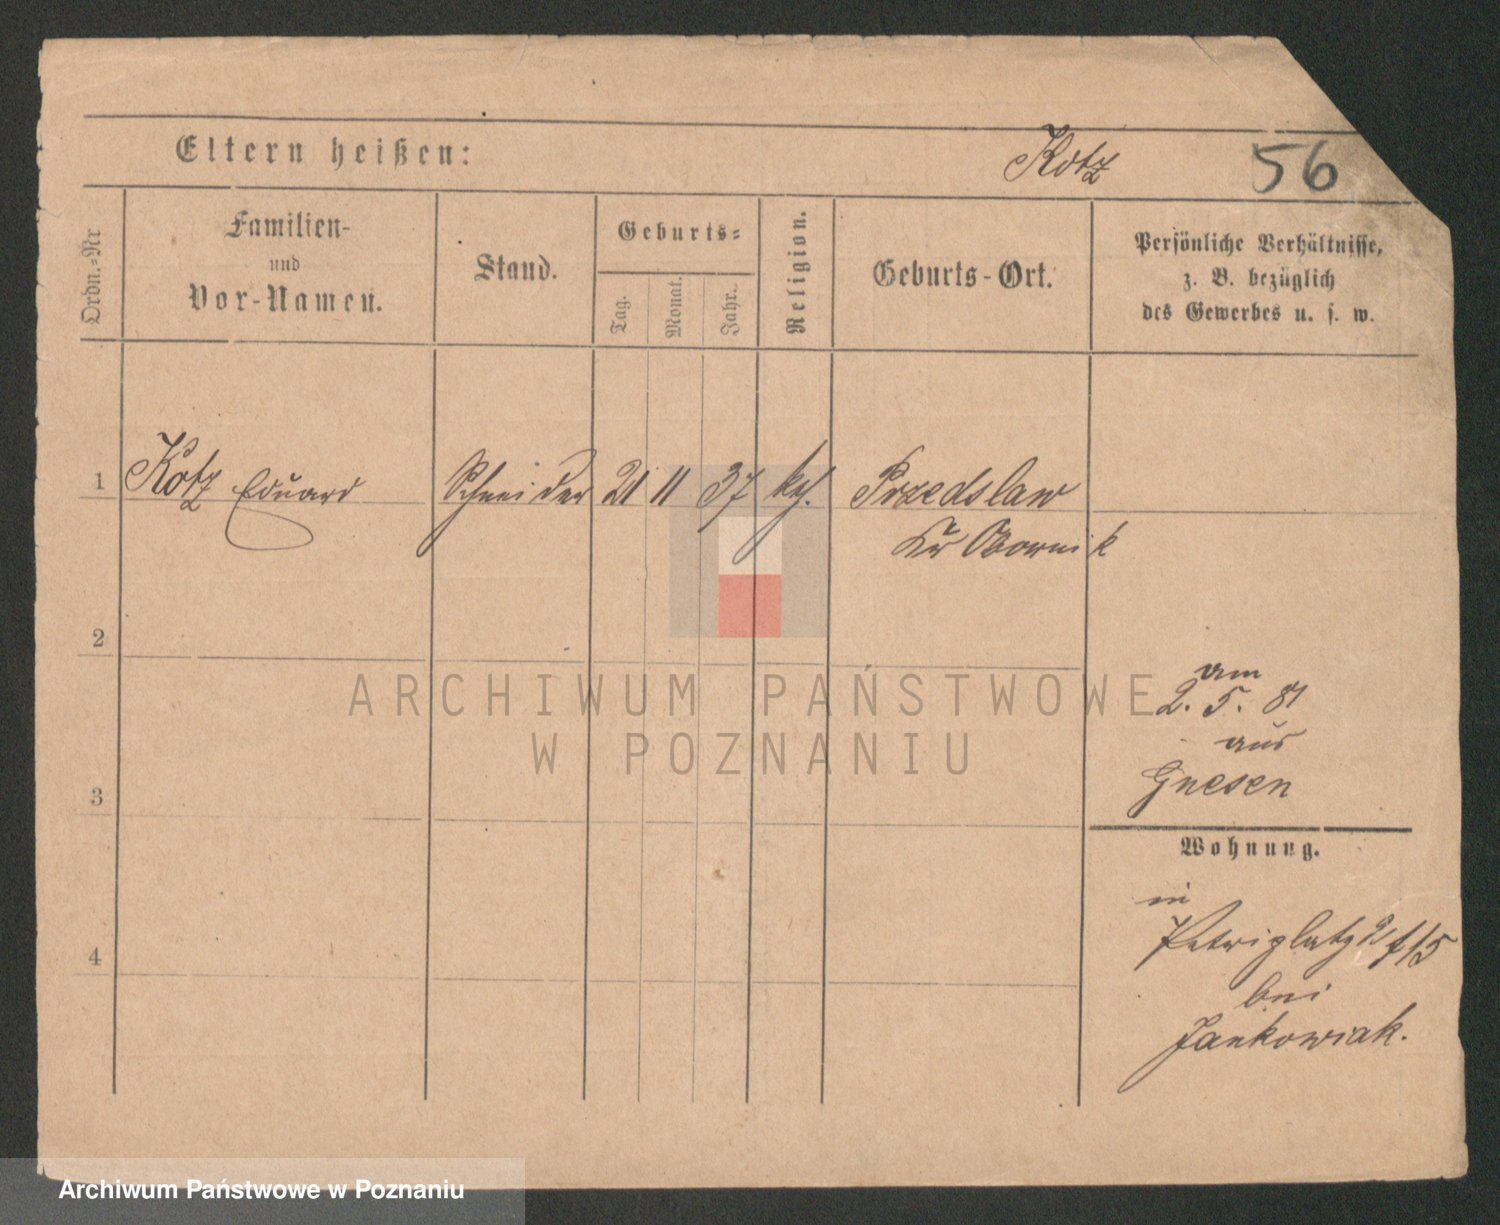 Eltern heißen:
Kotz
56
Ordn.-Nr
Familien-
und
Vor-Namen.
Stand.
Geburts-
Tag.
Monat.
Jahr.
Religion.
Geburts-Ort.
Persönliche Verhältnisse,
z. B. bezüglich
des Gewerbes u. s. w.
1 Kotz Eduard Schneider 21 11 37 kth. Przedslaw
Kr Obornik
2
am
2. 5. 81
aus
Gnesen
3
Wohnung.
in
Petriplatz
4
bei
Jankowiak.
ARCHIWUM PAŃSTWOWE
W POZNANIU
Archiwum Państwowe w Poznaniu